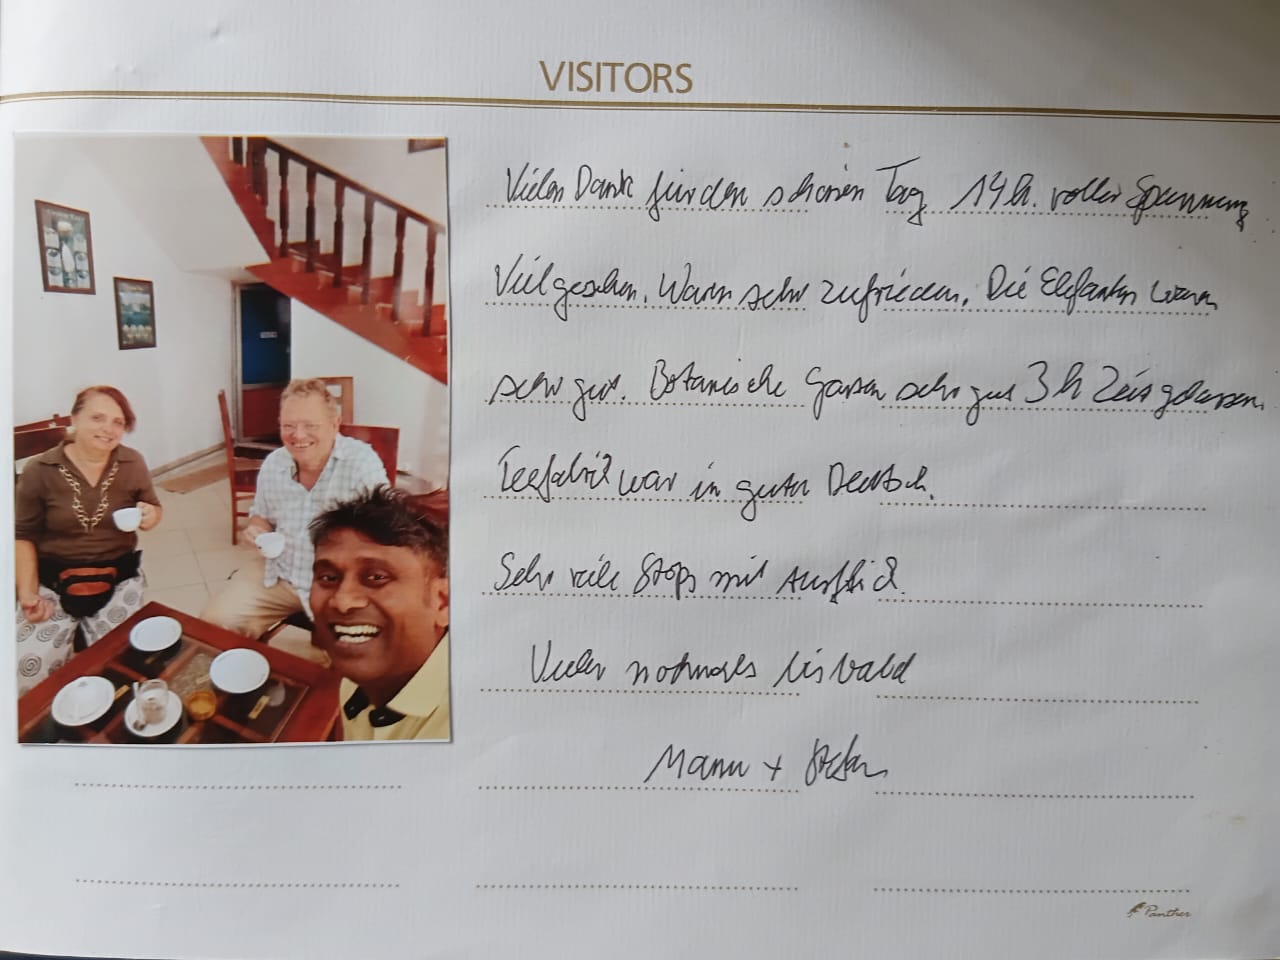 VISITORS
Vielen Dank für den schönen Tag 14h. voller Spannung
Viel gesehen. Waren sehr zufrieden. Die Elefanten waren
sehr gut. Botanische Garten sehr gut 3h Zeit gelassen.
Teefabrik war in guten Deutsch.
Sehr viele Stops mit Ausflick.
nochmals bis bald
Manu + Stefan
Panther